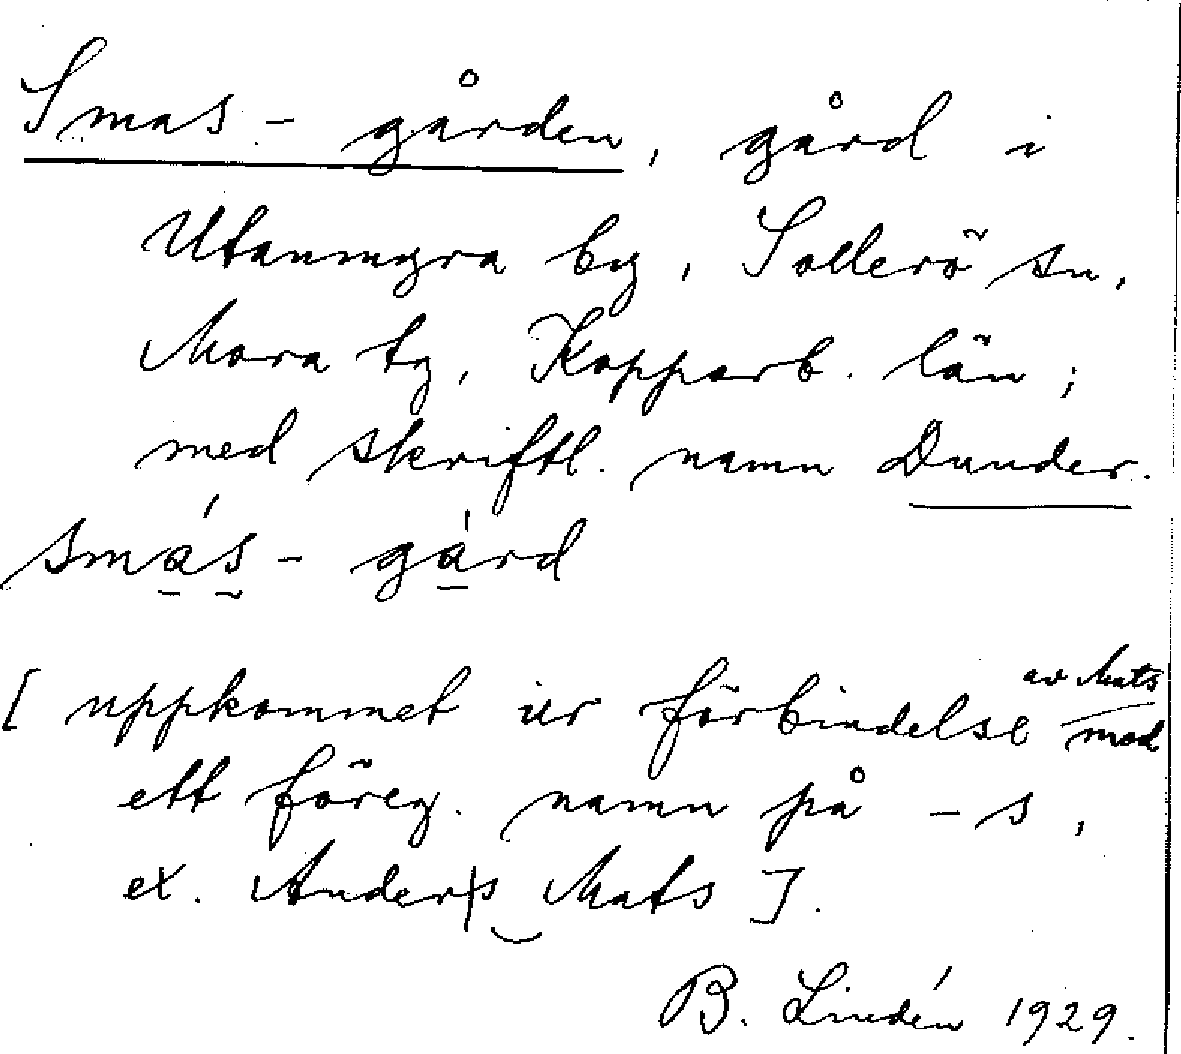 Smas-gården, gård i
Utanmyra by, Sollerö sn,
Mora tg, Kopparb. län;
med skriftl. namn Dunder.
smás-gárd
[ uppkommet ur förbindelse av Mats med
ett föreg. namn på -s,
ex. Ander|s Mats ].
B. Lindén 1929.